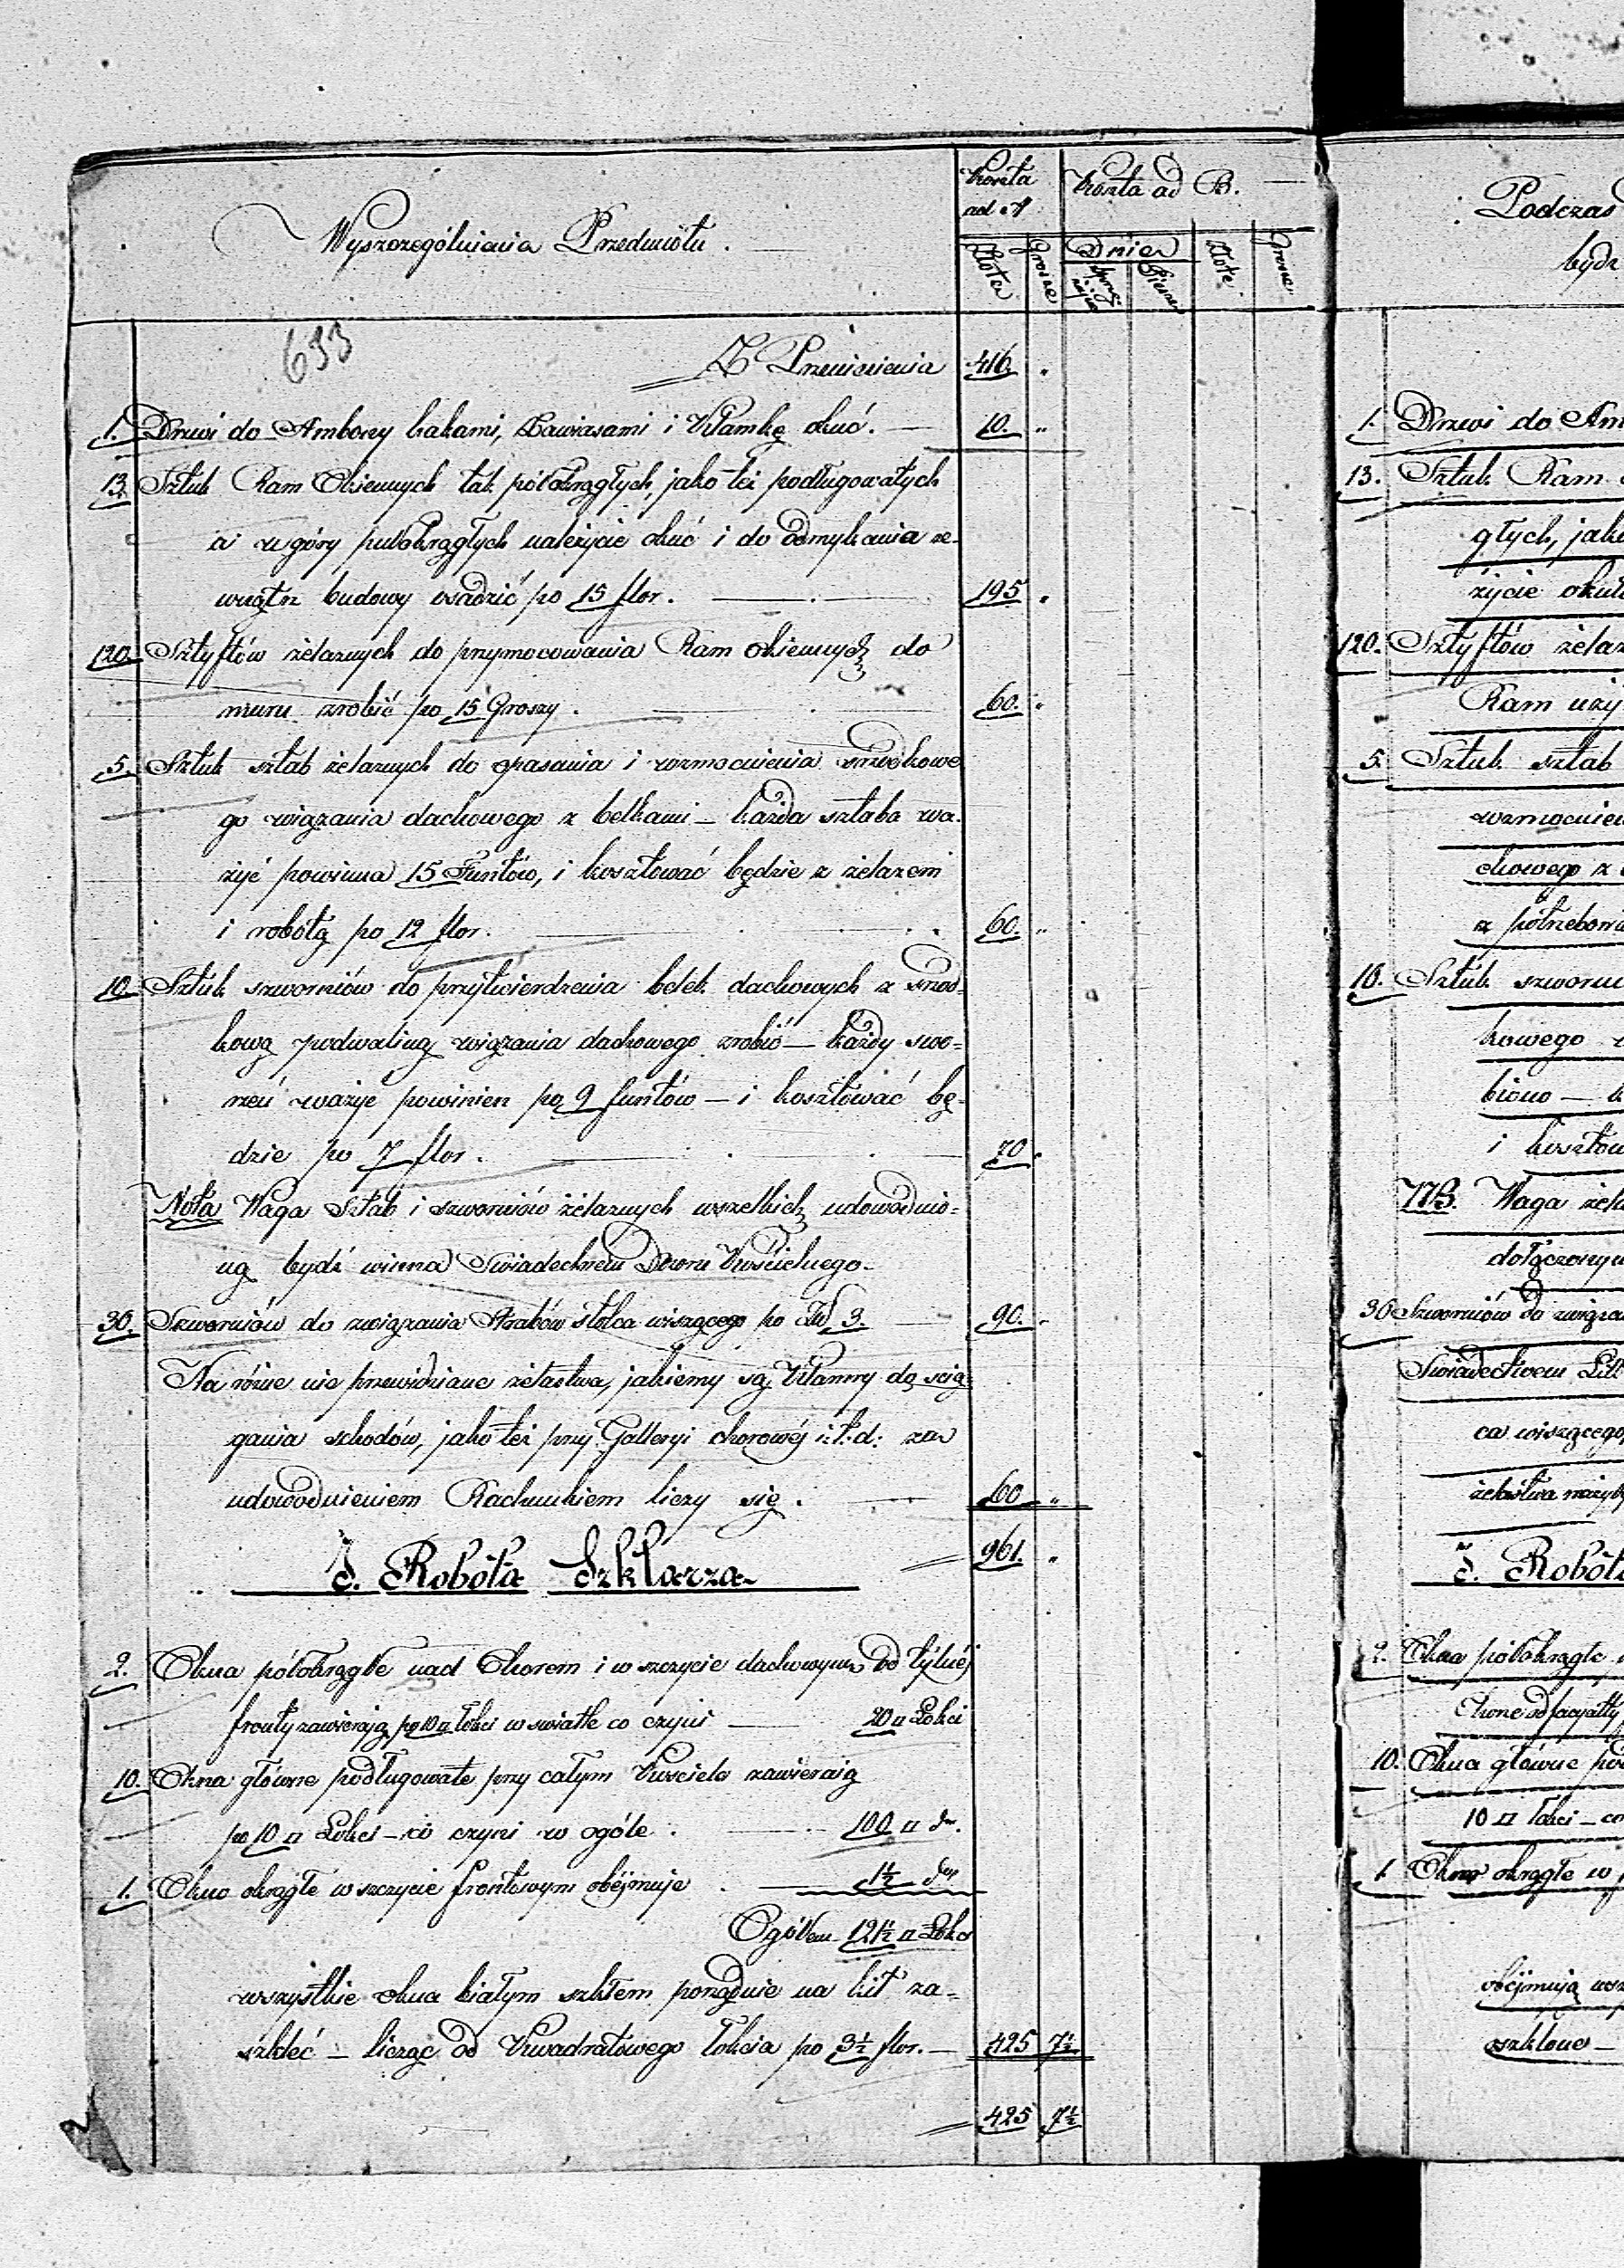 Wyszczególnienia Przedmiotu.
Koszta ad A
Koszta ad B.
Złote
Grosze
Dnie
Piesze
Złote
Grosze
Podczas
bydź
693
Z Przeniesienia 416. "
1. Drzwi do Ambony hakami, Zawiasami i Klamkę okuć. — 10. "
13. Sztuk Ram Okiennych tak półokrągłych, jako też podługowatych
a u góry pułokrągłych należycie okuć i do odmykania ze-
wnątrz budowy osadzić po 15 flor. — 195 "
120. Sztyftów żelaznych do przymocowania Ram okiennych do
muru zrobić po 15 Groszy. 60. "
5. Sztuk sztab żelaznych do opasania i wzmocnienia środkowe
go wiązania dachowego z belkami — każda sztaba wa-
żyć powinna 15 Funtów, i kosztować będzie z żelazem
i robotą po 12 flor. 60. "
10. Sztuk szworniów do przytwierdzenia belek dachowych z środ-
kową podwaliną wiązania dachowego zrobić — każdy swo-
rzeń ważyć powinien po 9 funtów — i kosztować bę-
dzie po 7 flor. 70 "
Nota Waga Sztab i szworniów żelaznych wszelkich udowodnio-
ną bydź winna Swiadectwem Dozoru Kościelnego.
30. Szworniów do związania Sztabów stolca wiszącego po Zł 3. — 90. "
Na różne nie przewidziane żelastwa, jakiemy są Klamry do ścią-
gania schodów, jako też przy Galleryi chorowéj i.t.d: za
udowodnieniem Rachunkiem liczy się. — 60 "
961. "
J. Robota Szklarza
2. Okna półokrągłe nad Chorem i w szczycie dachowym od tylnéj
fronty zawierają po 10 □ łokci w świetle co czyni — 20 □ Łokci
10. Okna główne podługowate przy całym Kościele zawieraią
po 10 □ Łokci — co czyni w ogóle. — 100 □ do.
1. Okno okrągłe w szczycie frontowym obéjmuje. — 1½ do
Ogółem 121½ □ Łokci
wszystkie okna białym szkłem porządnie na kit za-
szkleć — licząc od Kwadratowego Łokcia po 3½ flor. — 425 7½
425 7½
1. Drzwi do Am
13. Sztuk Ram
głych, jako
życie okuto
120. Sztyftów żelaz
Ram uży
5. Sztuk sztab
wzmocnien
chowego z
z potrzebow
10. Sztuk szworn
kowego
biono —
i kosztow
NB. Waga żela
dołączonym
30 Szworniów do związa
Swiadectwem
ca wiszącego
żelastwa
J. Robota
2. Okna półokrągłe
10. Okna główne pod
10 □ łokci — co
1. Okno okrągłe w
obéjmują wsz
oszklone —